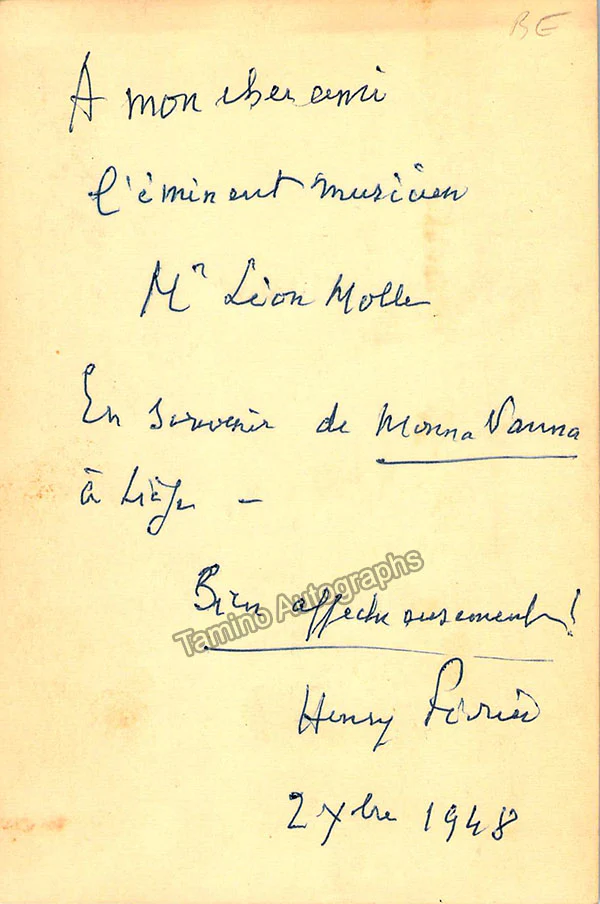 BE
A mon cher ami
l'éminent musicien
Mr Léon Molle
En souvenir de Monna Vanna
à Liège -
Bien affectueusement!
Tamino Autographs
Henry Février
2 Xbre 1948